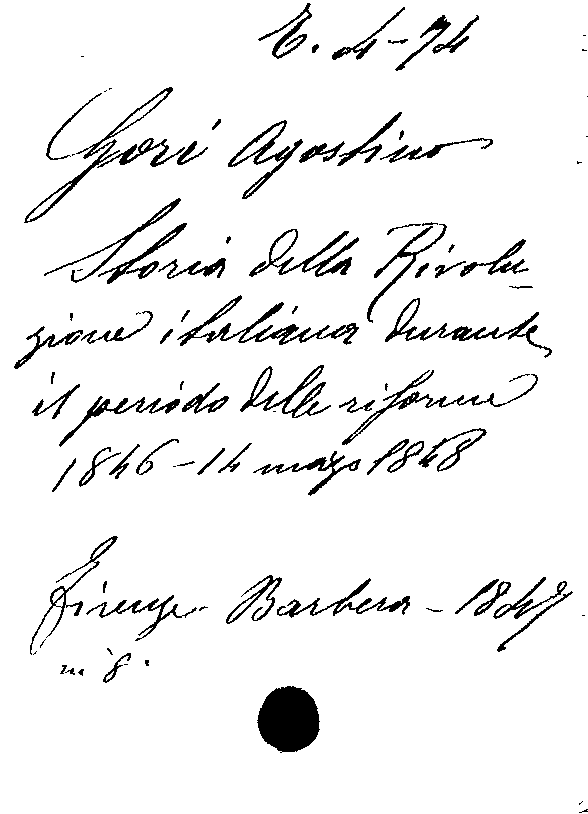 E. 4-74
Gori Agostino
Storia della Rivolu-
zione italiana durante
il periodo delle riforme
1846-14 marzo 1848
Firenze Barbera - 1847
in 8.